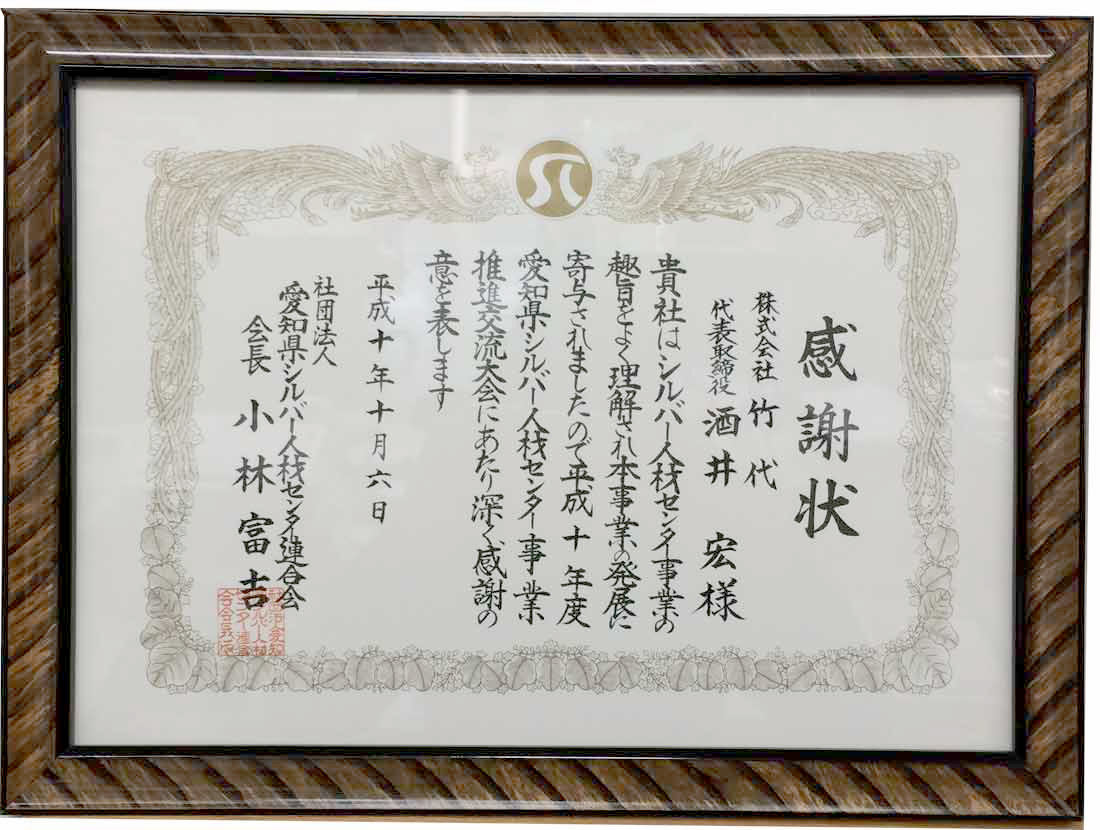 感謝状
株式会社 竹代
代表取締役 酒井 宏様
貴社はシルバー人材センター事業の
趣旨をよく理解され本事業の発展に
寄与されましたので平成十年度
愛知県シルバー人材センター事業
推進交流大会にあたり深く感謝の
意を表します
平成十年十月六日
社団法人
愛知県シルバー人材センター連合会
会長 小林富吉